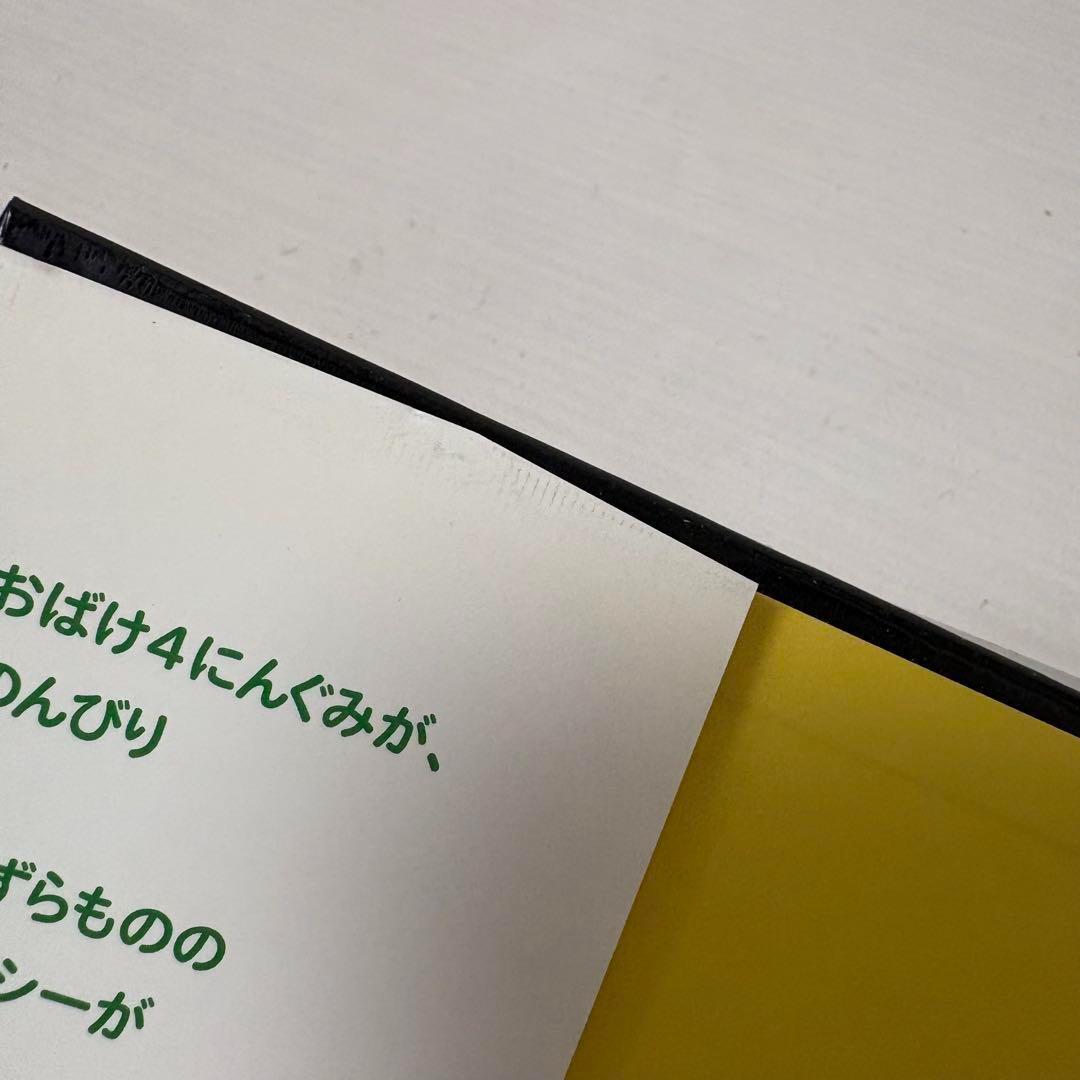 おばけ4にんぐみが、
のんびり
ずらものの
シーが